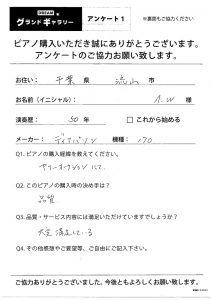 DREAM
グランドギャラリー アンケート1 ※裏面もご協力ください
ピアノ購入いただき誠にありがとうございます。
アンケートのご協力お願い致します。
お住い: 千葉 県 流山 市
お名前(イニシャル): A.W 様
演奏歴: 50 年 □ これから始める
メーカー: ディアパソン 機種: 170
Q1.ピアノの購入経緯を教えてください。
ヤフーオークションにて
Q2.このピアノの購入時の決め手は?
品質
Q3.品質・サービス内容には満足いただけていますでしょうか?
大変満足している
Q4.その他感想やご要望等、ご自由にご記入下さい。
ご協力ありがとうございました。今後ともよろしくお願い致します。